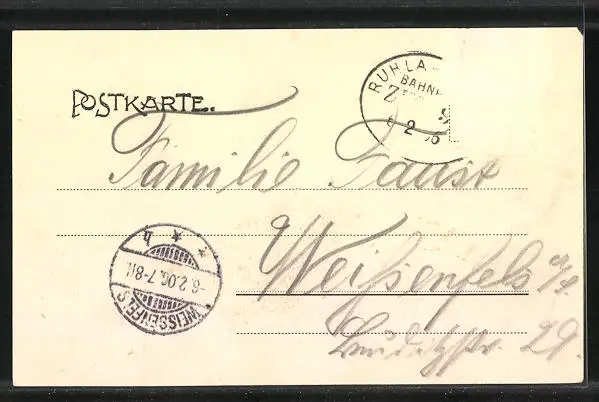 POSTKARTE.
RUHLA-
BAHNP
Z
6 2 06
Familie Faust
Weißenfels a/S.
29.
WEISSENFELS
-6.2.06.7-8N.
* * h